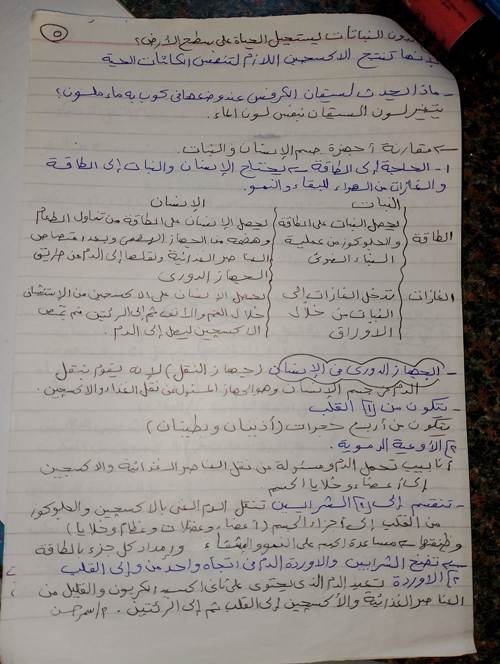 ٥
بدون النباتات ليستحيل الحياة على سطح الأرض؟
لإنها تنتج الاكسجين اللازم لتنفس الكائنات الحية
- ماذا يحدث لسيقان الكرفس عند وضعها في كوب به ماء ملون؟
يتغير لون السيقان بنفس لون الماء.
مقارنة أجهزة جسم الإنسان والنبات.
١- الحاجة إلى الطاقة يحتاج الإنسان والنبات إلى الطاقة
والغازات من الهواء للبقاء والنمو.
النبات الإنسان
الطاقة
يحصل النبات على الطاقة
والجلوكوز من عملية
البناء الضوئى
يحصل الإنسان على الطاقة من تناول الطعام
وهضمه من الجهاز الهضمى وبعد امتصاص
العناصر الغذائية ونقلها إلى الدم عن طريق
الجهاز الدورى
الغازات
تدخل الغازات إلى
النبات من خلال
الاوراق
يحصل الإنسان على الاكسجين من الإستنشاق
خلال الفم والأنف ثم إلى الرئتين ثم يمتص
الاكسجين ليصل إلى الدم.
- الجهاز الدورى فى الإنسان (جهاز النقل) لإنه يقوم بنقل
الدم فى جسم الإنسان وهو الجهاز المسئول عن نقل الغذاء والاكسجين.
- يتكون من ١] القلب
يتكون من أربع حجرات (أذينان وبطينان)
٢] الأوعية الدموية.
أنابيب تحمل الدم ومسئولة عن نقل العناصر الغذائية والاكسجين
إلى أعضاء وخلايا الجسم.
- تنقسم إلى ١] الشرايين تنقل الدم الغنى بالاكسجين والجلوكوز
من القلب إلى أجزاء الجسم (أعضاء وعضلات وعظام وخلايا)
وظيفتها مساعدة الجسم على النمو والبقاء وإمداد كل جزء بالطاقة
تضخ الشرايين والاوردة الدم فى اتجاه واحد من وإلى القلب
٢] الاوردة تعيد الدم الذى يحتوى على ثانى اكسيد الكربون والقليل من
العناصر الغذائية والأكسجين إلى القلب ثم إلى الرئتين.